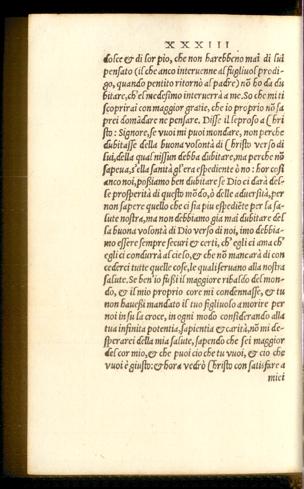 XXXIII
dolce & di sor pio, che non harebbeno mai di lui
pensato (il che anco interuenne al figliuol prodi-
go, quando pentito ritornò al padre) nō ho da du
bitare, ch'el medesimo interuerrà a me. So che mi ti
scoprirai con maggior gratie, che io proprio nō sa
prei domādare ne pensare. Disse il leproso a Chri
sto: Signore, se vuoi mi puoi mondare, non perche
dubitasse della buona volontà di Christo verso di
lui, della qual nissun debba dubitare, ma perche nō
sapeua, s'ella sanità gl'era espediente ò no: hor cosi
anco noi, possiamo ben dubitare se Dio ci darà del-
le prosperità di questo mōdo, ò delle aduersità, per
non sapere quello che ci sia piu espediēte per la sa-
lute nostra, ma non debbiamo gia mai dubitare del
la buona volontà di Dio verso di noi, imo debbia-
mo essere sempre securi & certi, ch'egli ci ama ch'
egli ci condurrà al cielo, & che nō mancarà di con
cederci tutte quelle cose, le quali seruano alla nostra
salute. Se ben'io fussi il maggiore ribaldo del mon-
do, & il mio proprio core mi condennasse, & tu
non hauessi mandato il tuo figliuolo a morire per
noi in su la croce, in ogni modo considerando alla
tua infinita potentia, sapientia & carità, nō mi de-
sperarei della mia salute, sapendo che sei maggior
del cor mio, & che puoi cio che tu vuoi, & cio che
vuoi è giusto: & hora vedrò Christo con satisfare a
mici